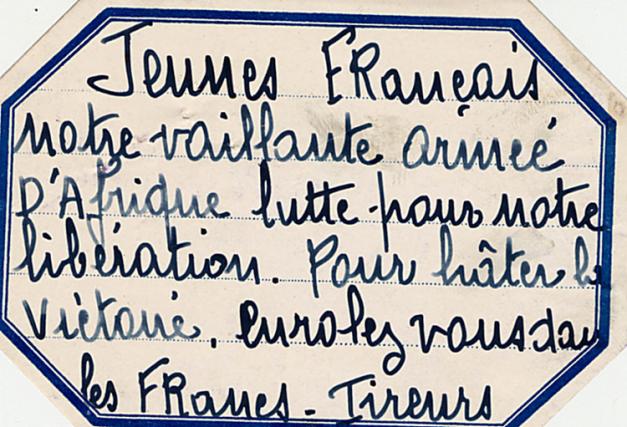 Jeunes Français
notre vaillante armée
D'Afrique lutte pour notre
libération. Pour hâter la
Victoire, enrolez vous dans
les Francs-Tireurs